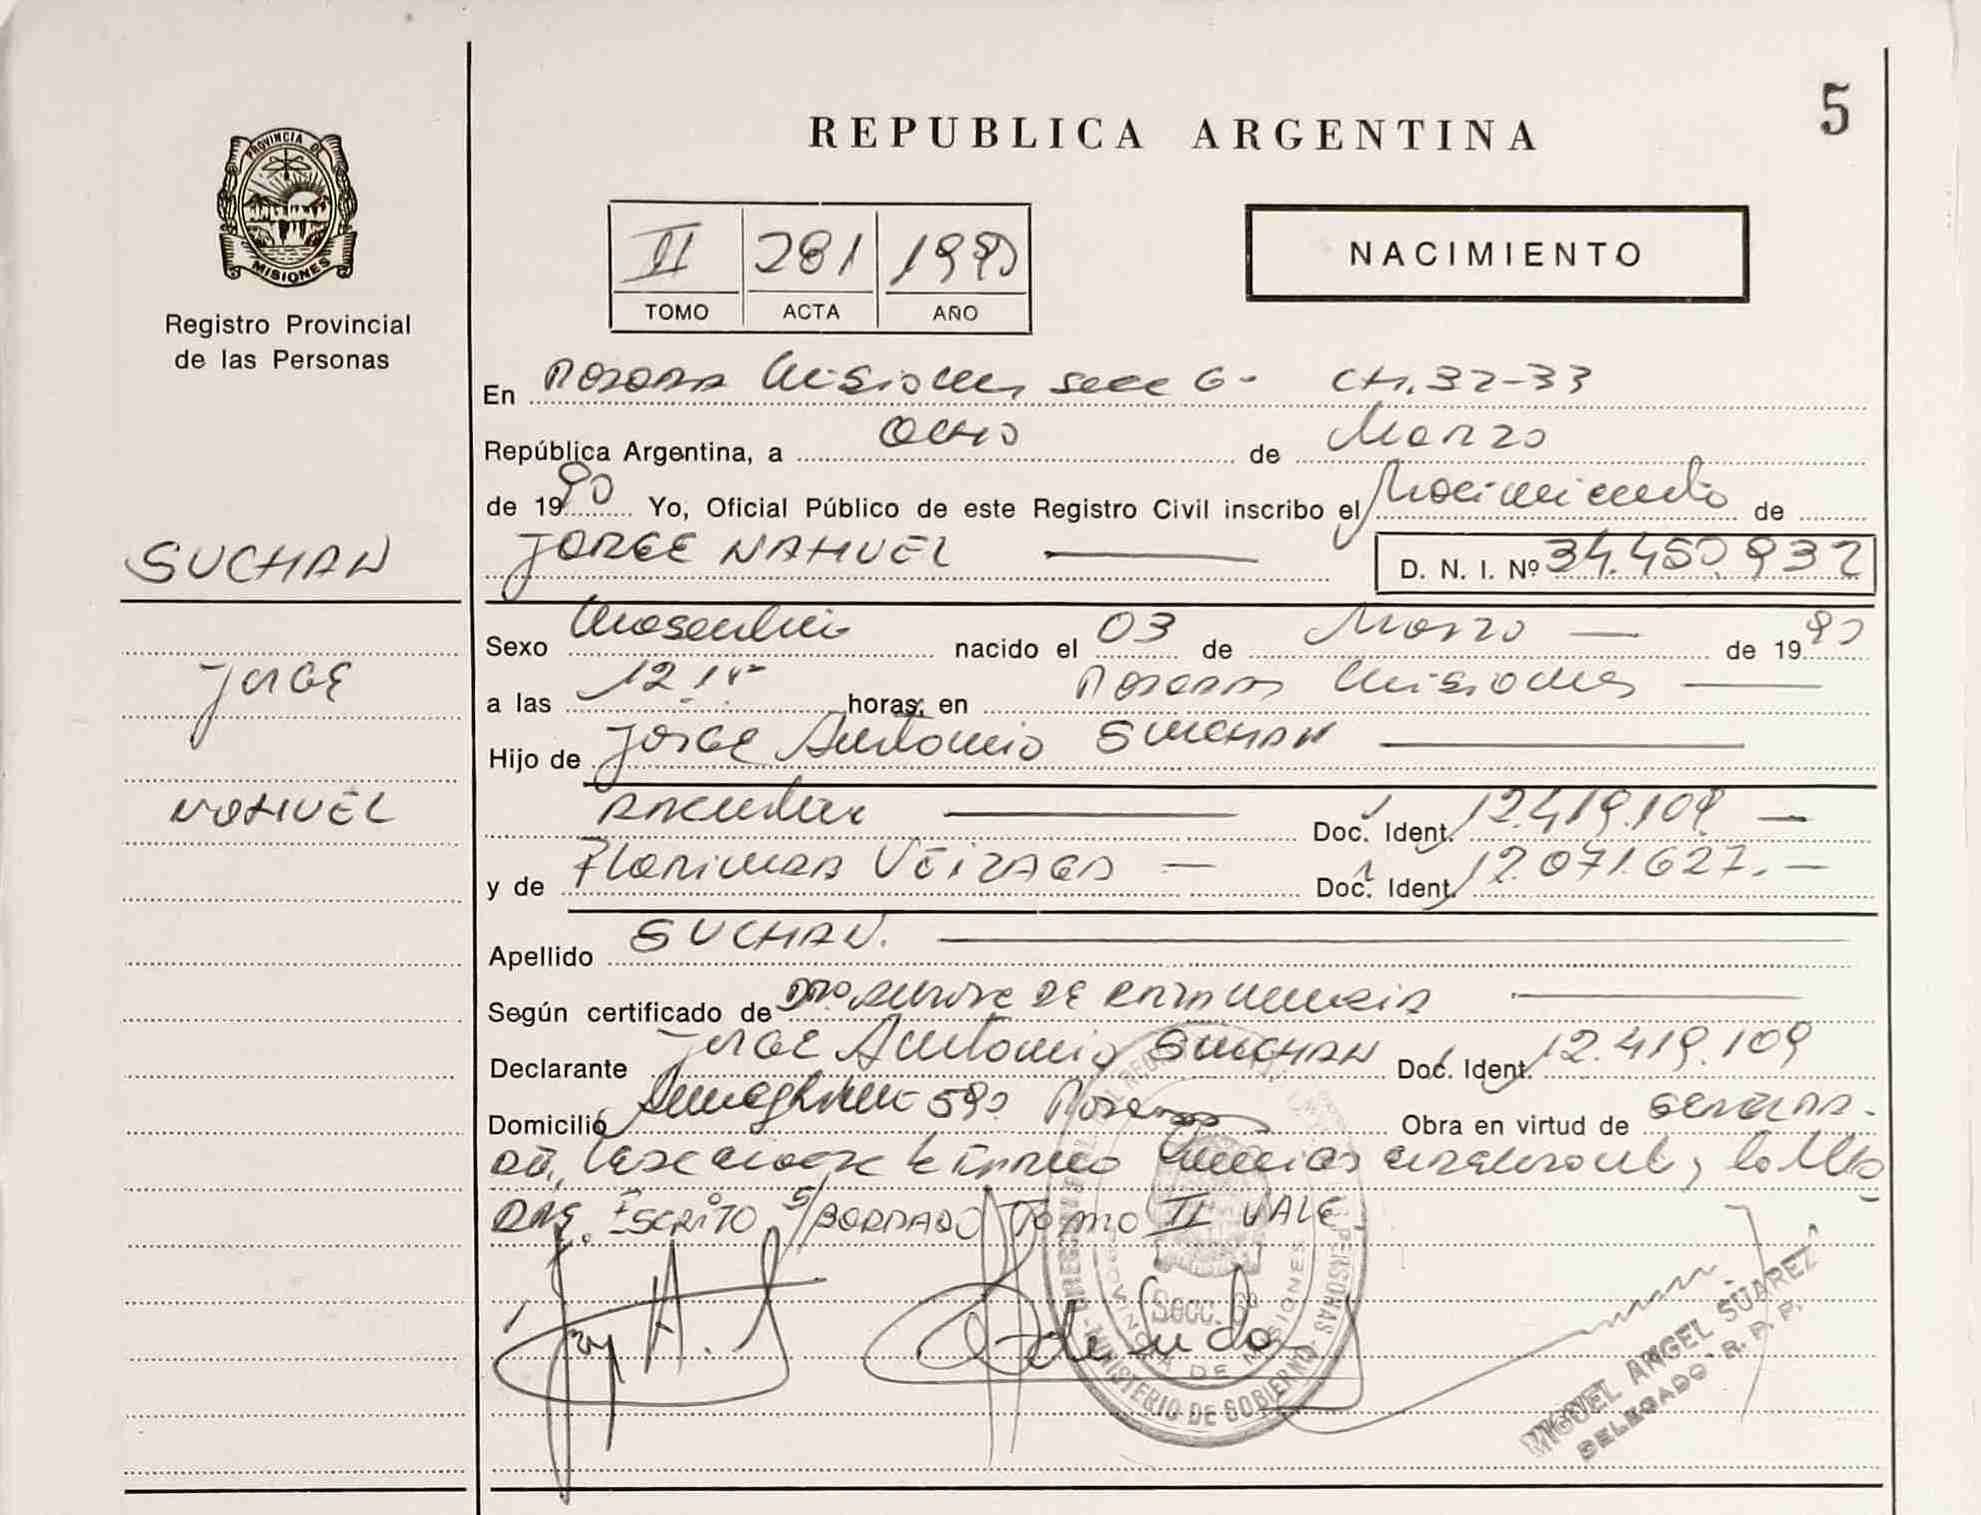 5
REPUBLICA ARGENTINA
PROVINCIA DE
MISIONES
Registro Provincial
de las Personas
II 281 1990
TOMO ACTA AÑO
NACIMIENTO
En Posadas Misiones Secc 6- CH. 32-33
República Argentina, a Ocho de Marzo
de 1990 Yo, Oficial Público de este Registro Civil inscribo el Nacimiento de
SUCHAN
JORGE NAHUEL D. N. I. Nº 34.450.932
Sexo Masculino nacido el 03 de Marzo de 1990
JORGE
a las 12 horas, en Posadas Misiones
Hijo de Jorge Antonio SUCHAN
NAHUEL
Doc. Ident. 12.419.109
y de Florinda VEIZAGA Doc. Ident. 12.071.627.-
Apellido SUCHAN.
Según certificado de
Declarante Jorge Antonio SUCHAN Doc. Ident. 12.419.109
Domicilio 590 Posadas Obra en virtud de
Escrito s/BORRADO TOMO II VALE
Secc. 6ª
PROVINCIA DE MISIONES
MINISTERIO DE GOBIERNO
MIGUEL ANGEL SUAREZ
DELEGADO R. P. P.